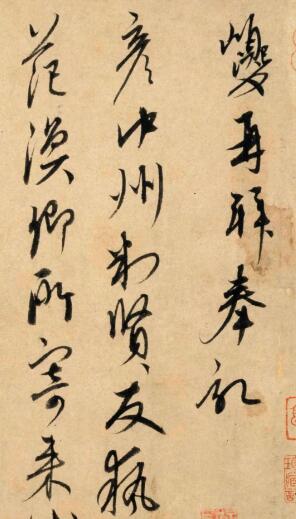 巙再拜奉記
彥中州判賢友執
范漢卿所寄來